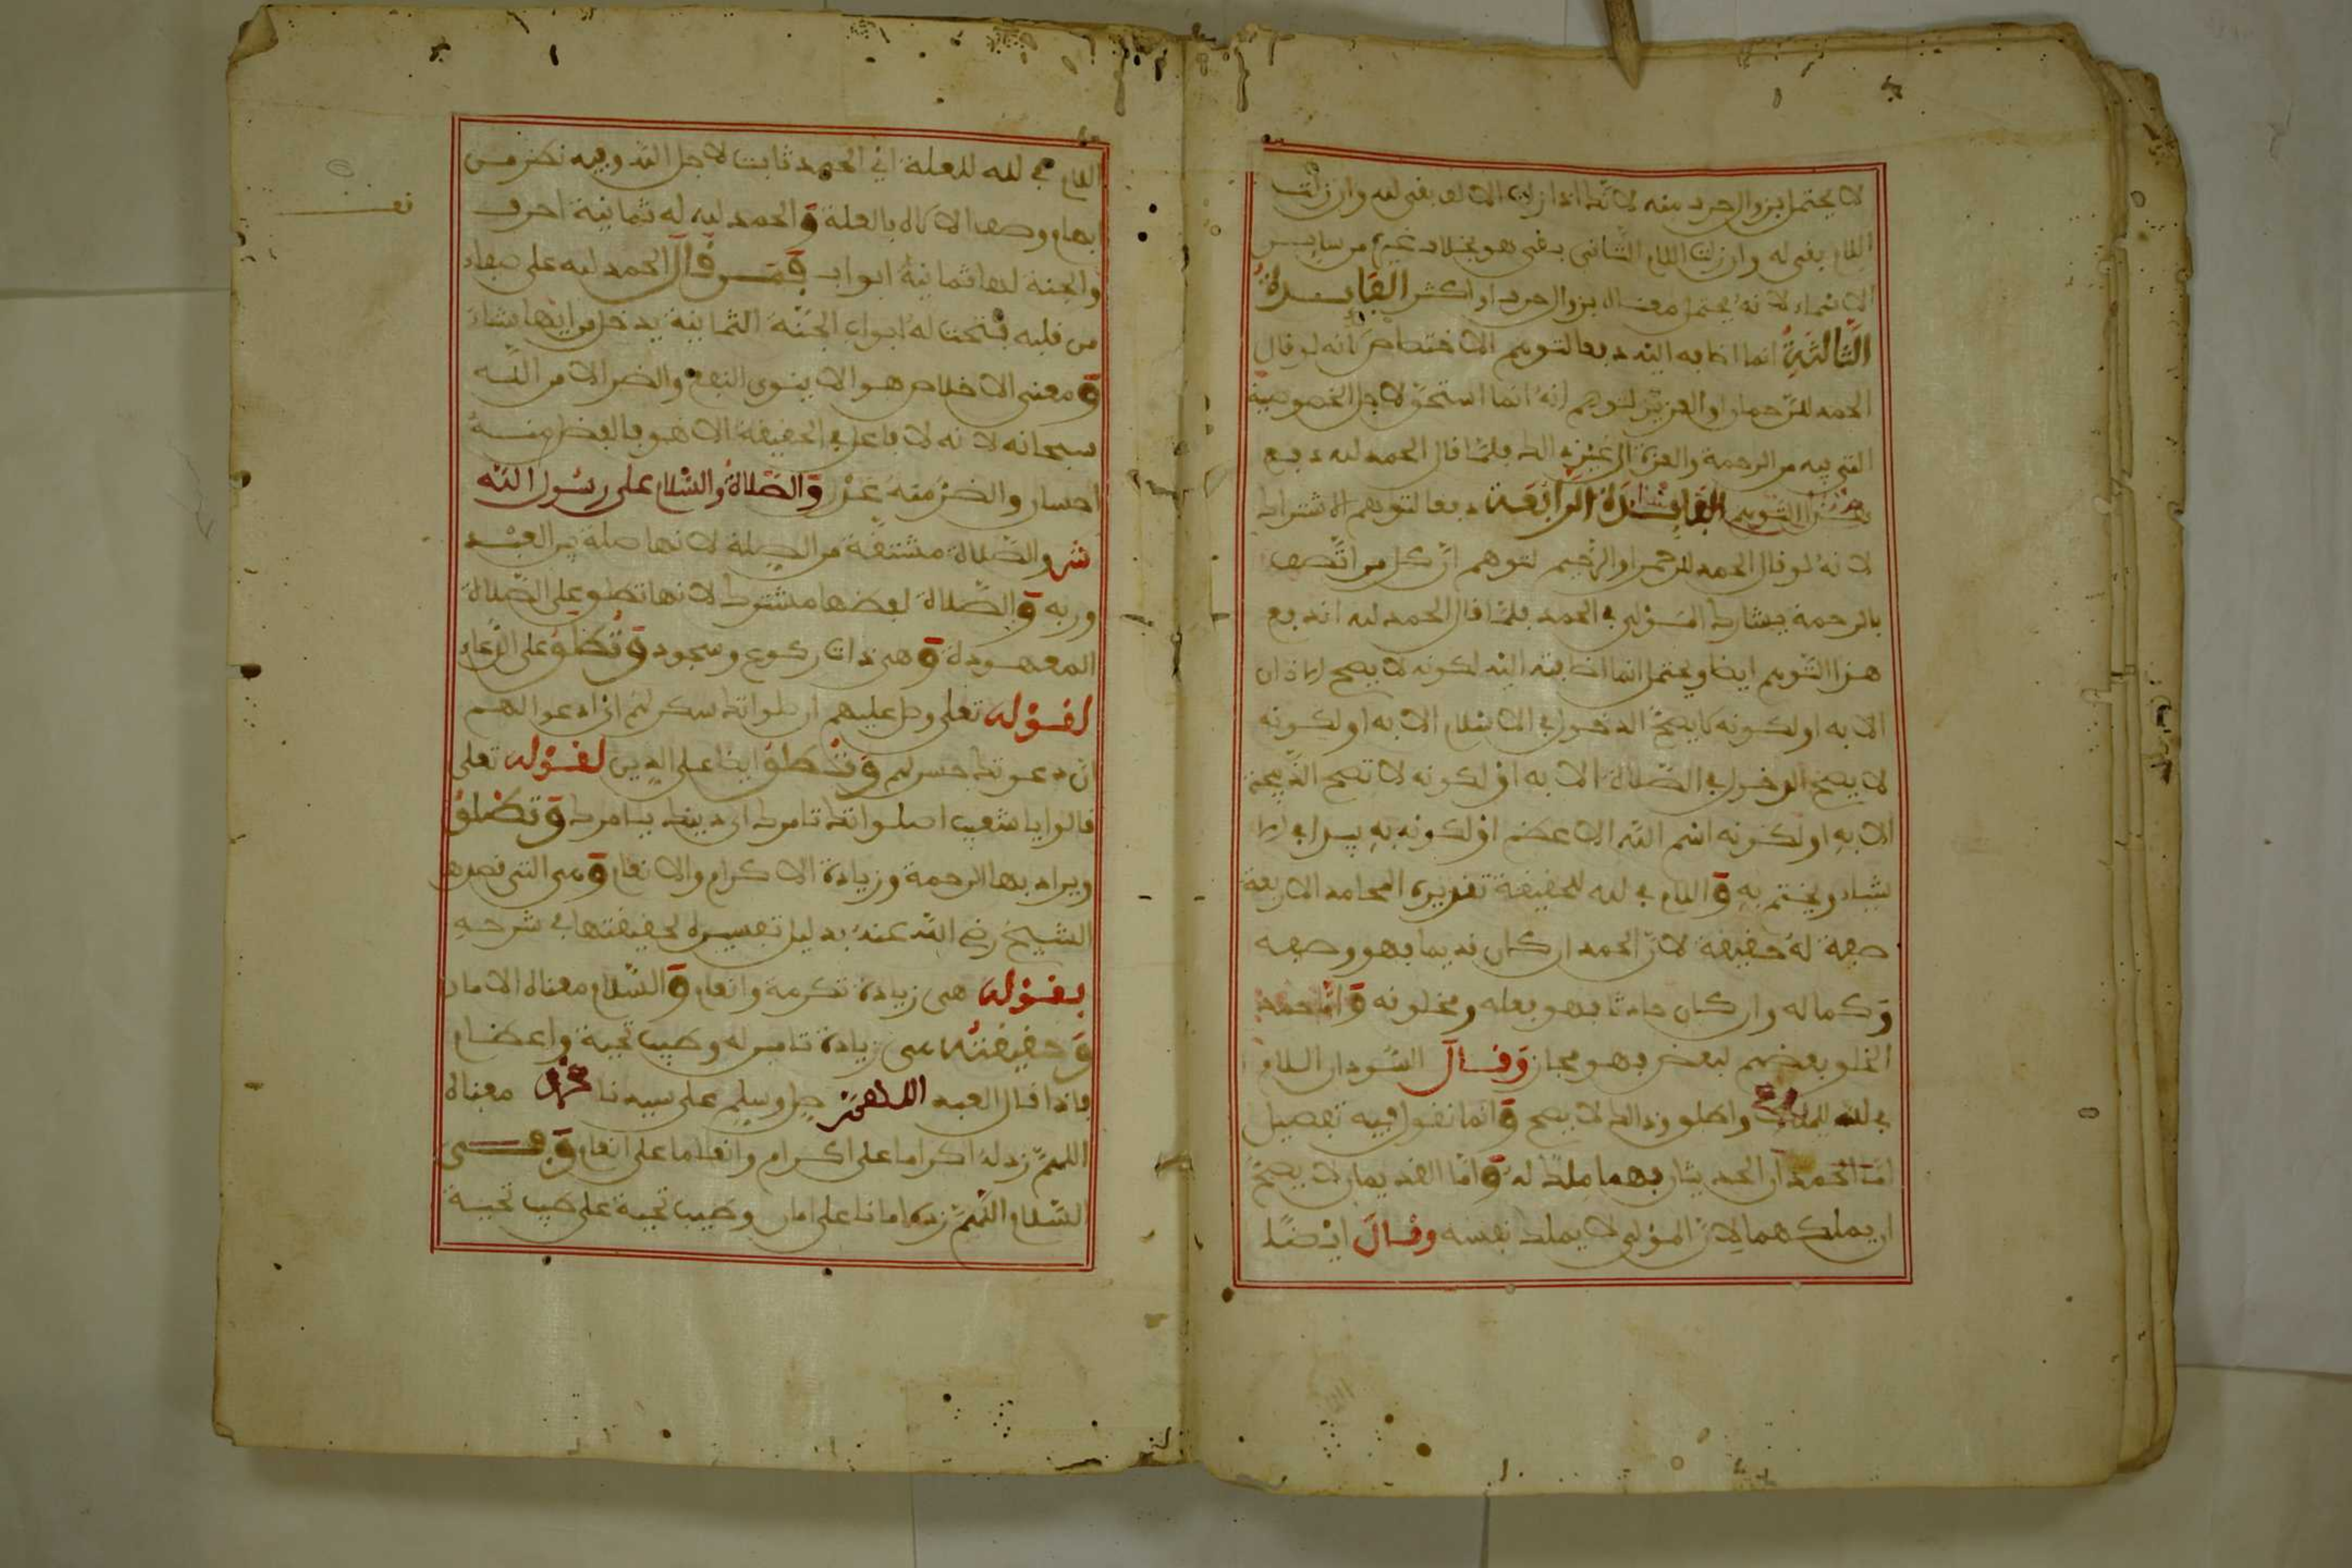 لا يختل بزوال حرف منه لانك اذا ازلت الالف بقي لله وان ازلت
اللام بقي له وان ازلت اللام الثاني بقي هو بخلاف غيره من سائر
الاسماء لانه يختل معناه بزوال حرف او اكثر الفايدة
الثالثة انما اضافه الى الله دفعا لتوهم الاختصاص لانه لو قال
الحمد للرحمان او العزيز لتوهم انه انما استحق لاجل الخصوصية
التي فيه من الرحمة والعزة الى غير ذلك فلما قال الحمد لله دفع
هذا التوهم الفايدة الرابعة دفعا لتوهم الاشتراك
لانه لو قال الحمد للرحمن او الرحيم لتوهم ان كل من اتصف
بالرحمة يشارك المولى في الحمد فلما قال الحمد لله اندفع
هذا التوهم ايضا ويحتمل انما اضافته الى الله لكونه لا يصح الاذان
الا به او لكونه لا يصح الدخول في الاسلام الا به او لكونه
لا يصح الدخول في الصلاة الا به او لكونه لا تصح الذبيحة
الا به او لكونه اسم الله الاعظم او لكونه به يبدا في
ويختم به واللام في لله للحقيقة تقديره المحامد الاربعة
صفة له حقيقة لان الحمد ان كان قديما فهو وصفه
وكماله وان كان حادثا فهو فعله ومخلوقه واما حمد
الخلق بعضهم لبعض فهو مجاز وقال السودان اللام
في لله للملك واطلق وذلك لا يصح وانما نقول فيه تفصيل
اما الحمدان الحديثان فهما ملك له واما القديمان لا يصح
ان يملكهما لان المولى لا يملك نفسه وقال ايضا
اللام في لله للعلة اي الحمد ثابت لاجل الله وفيه نظر من
ابهام وصف الاكاه بالعلة والحمد لله له ثمانية احرف
والجنة لها ثمانية ابواب فمن قال الحمد لله على صفاء
من قلبه فتحت له ابواب الجنة الثمانية يدخل من ايها يشاء
ومعنى الاخلاص هو الا ينوى النفع والضر الا من الله
سبحانه لانه لا فاعل في الحقيقة الا هو فالفضل منه
احسان والضر منه عدل والصلاة والسلام على رسول الله
ش والصلاة مشتقة من الصلة لانها صلة بين العبد
وربه والصلاة لفظها مشترك لانها تطلق على الصلاة
المعهودة وهي ذات ركوع وسجود وتطلق على الدعاء
لقوله تعلى وصل عليهم ان صلواتك سكن لهم اي ادعوا لهم
ان دعوتك لهم وتطلق ايضا على الدين لقوله تعلى
قالوا يا شعيب اصلواتك تامرك اي دينك يامرك وتطلق
ويراد بها الرحمة وزيادة الاكرام والانعام وهي التي قصدها
الشيخ رضي الله عنه بدليل تفسيره لحقيقتها في شرحه
بقوله هي زيادة تكرمة وانعام والسلام معناه الامان
وحقيقته هي زيادة تامين له وطيب تحية واعظام
فاذا قال العبد اللهم صل وسلم على سيدنا محمد معناه
اللهم زد له اكراما على اكرام وانعاما على انعام ومعنى
السلام اللهم زده امانا على امان وطيب تحية على طيب تحية